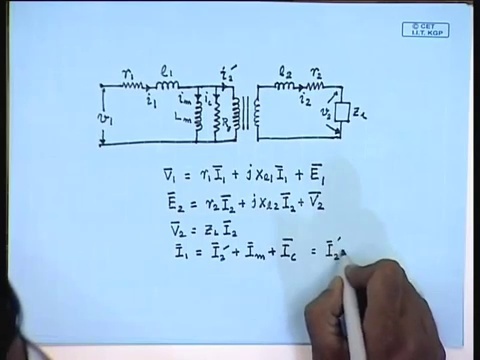 © CET
I.I.T. KGP
r₁ l₁ i₂′ l₂ r₂
i₁ i_m i_c i₂
v₁ L_m v₂ Z_L
V̄₁ = r₁Ī₁ + jx_l1 Ī₁ + Ē₁
Ē₂ = r₂Ī₂ + jx_l2 Ī₂ + V̄₂
V̄₂ = Z_L Ī₂
Ī₁ = Ī₂′ + Ī_m + Ī_c = Ī₂′